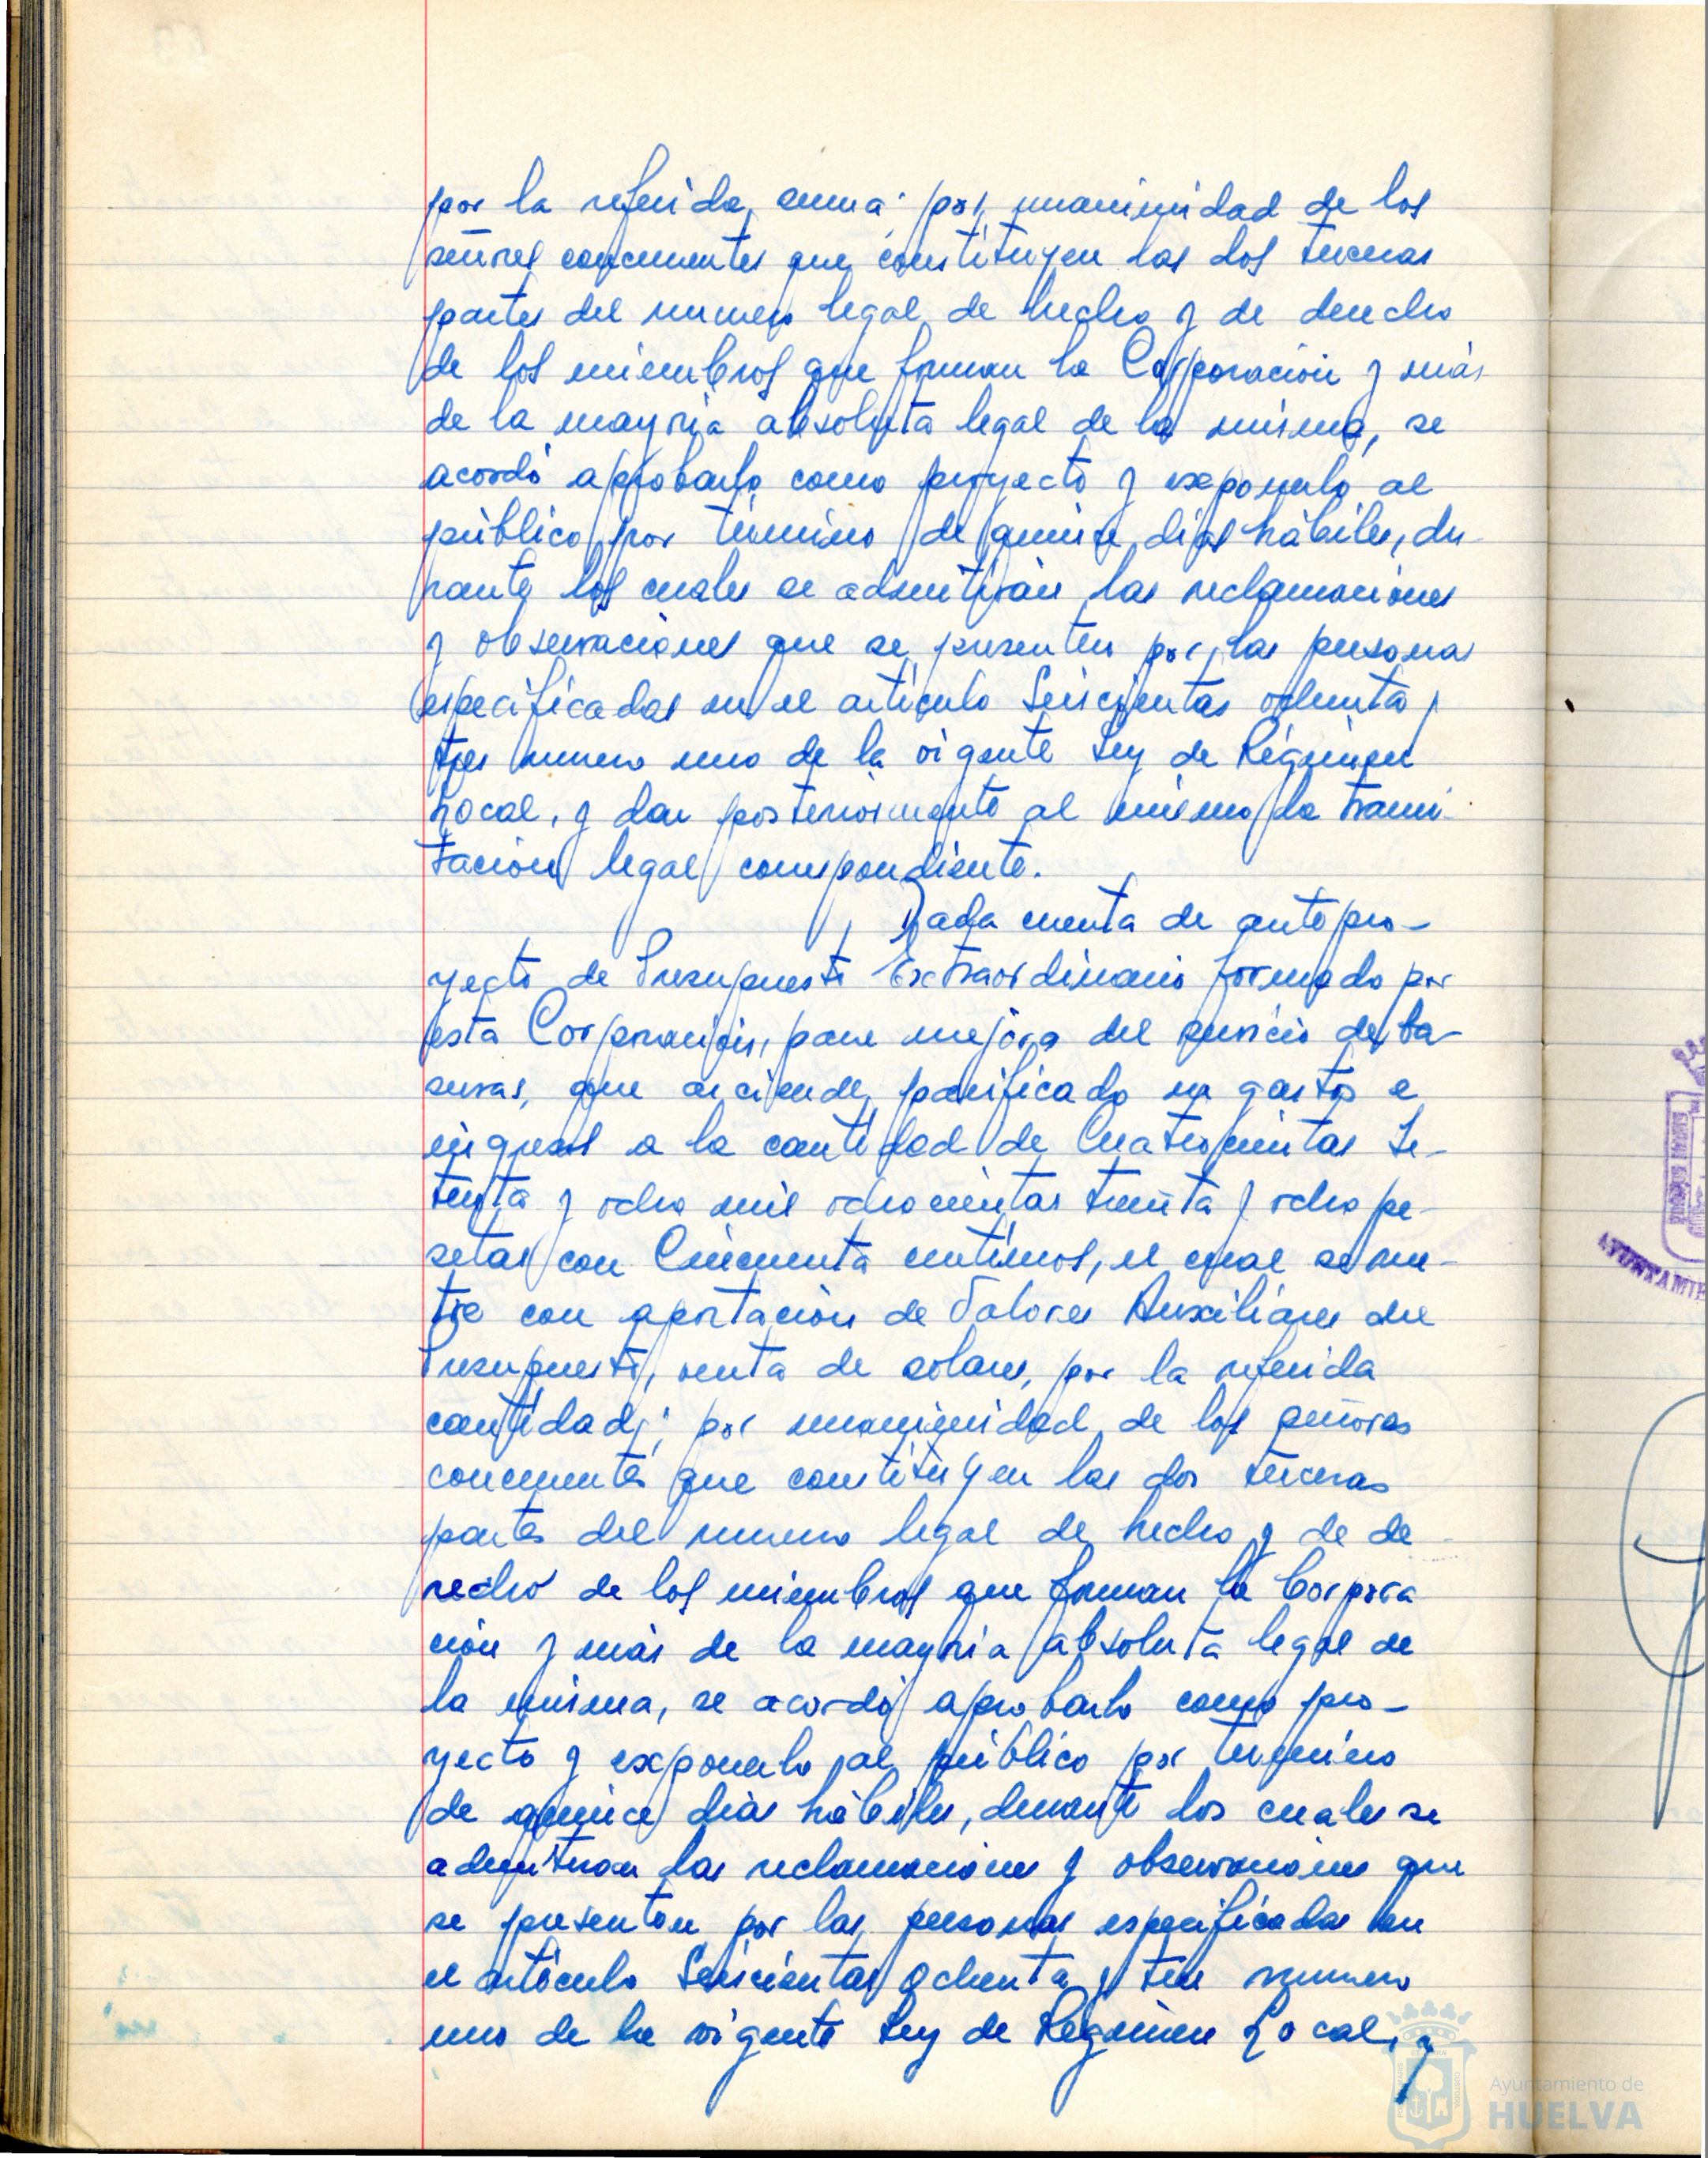 por la referida suma; por unanimidad de los
señores concurrentes que constituyen las dos terceras
partes del numero legal de hecho y de derecho
de los miembros que forman la Corporación y más
de la mayoria absoluta legal de la misma, se
acordó aprobarlo como proyecto y exponerlo al
público por término de quince dias hábiles, du-
rante los cuales se admitirán las reclamaciones
y observaciones que se presenten por las personas
especificadas en el artículo Seiscientas ochenta y
tres numero uno de la vigente Ley de Régimen
Local, y dar posteriormente al mismo la trami-
tación legal correspondiente.
Dada cuenta de antepro-
yecto de Presupuesto Extraordinario formado por
esta Corporación, para mejora del servicio de ba-
suras, que asciende, panificado en gastos e
ingresos a la cantidad de Cuatrocientas Se-
tenta y ocho mil ochocientas treinta y ocho pe-
setas con Cincuenta centimos, el cual se nu-
tre con aportación de Valores Auxiliares del
Presupuesto, venta de solares, por la referida
cantidad; por unanimidad de los señores
concurrentes que constituyen las dos terceras
partes del numero legal de hecho y de de-
recho de los miembros que forman la Corpora
ción y más de la mayoria absoluta legal de
la misma, se acordó aprobarlo como pro-
yecto y exponerlo al público por termino
de quince dias hábiles, durante los cuales se
admitiran las reclamaciones y observaciones que
se presenten por las personas especificadas en
el artículo Seiscientas ochenta y tres numero
uno de la vigente Ley de Régimen Local, y
Ayuntamiento de
HUELVA